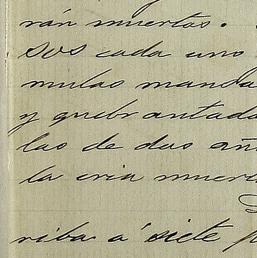 rán muertos.
sos cada uno
mulas manda
y quebrantada
las de dos añ
la cria muert
riba á siete p